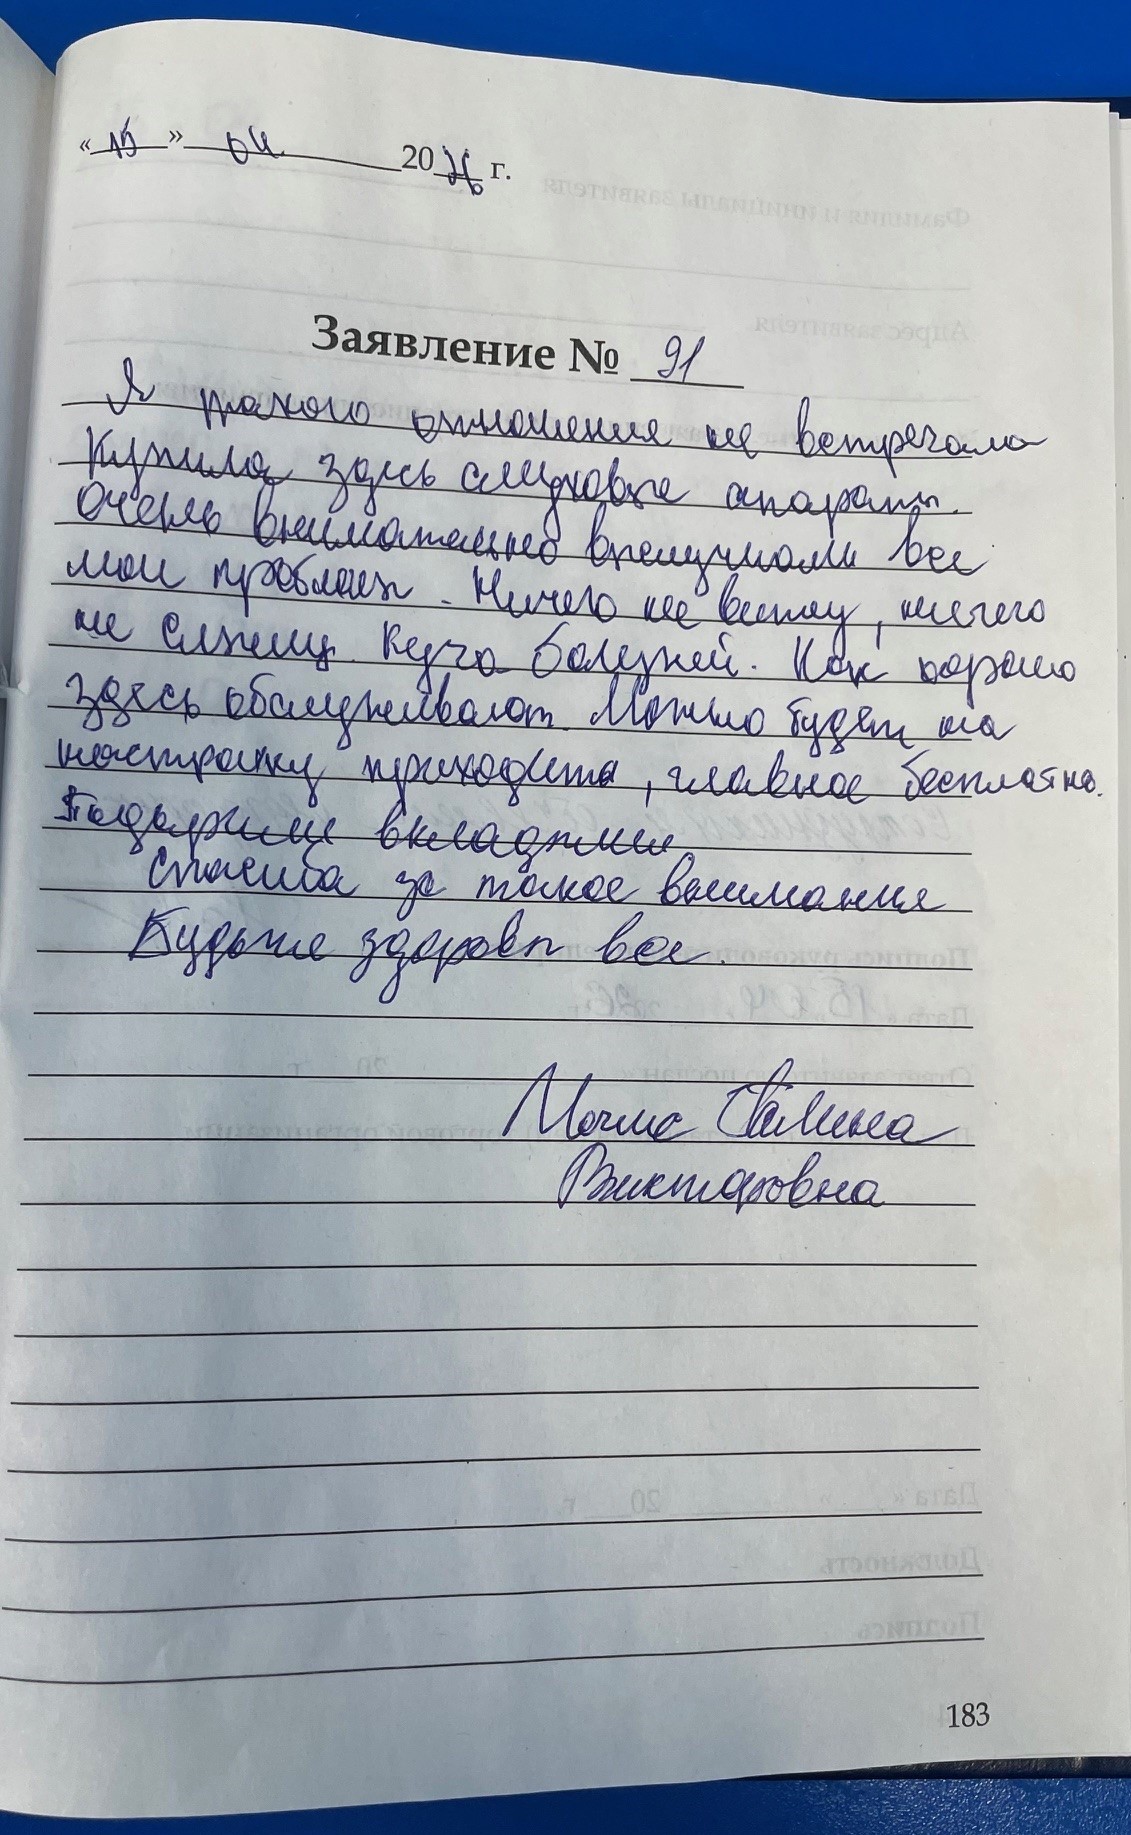 «15» 04 2026 г.
Заявление № 91
Я такого отношения не встречала
Купила здесь слуховые апараты.
Очень внимательно выслушали все
мои проблемы. Ничего не вижу, ничего
не слышу. Куча болезней. Как хорошо
здесь обслуживают. Можно будет на
настройку приходить, главное бесплатно.
Подарили вкладыши
Спасиба за такое внимания
Будьте здоровы все.
Галина
Викторовна
183